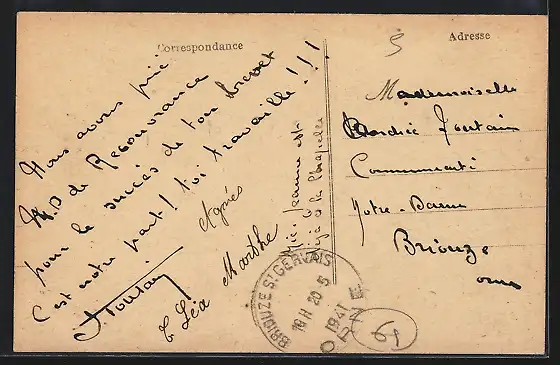 Correspondance
Nous avons prié
N.D de Recouvrance
pour le succès de ton brevet
C'est notre part! toi travaille!!!
Agnès
Marthe
Léa
Jeanne est
déjà à la Chapelle
Adresse
5
Mademoiselle
Fontain
Communauté
Notre-Dame
Briouze
orne
BRIOUZE ST GERVAIS
16H 20 5
1941
ORNE